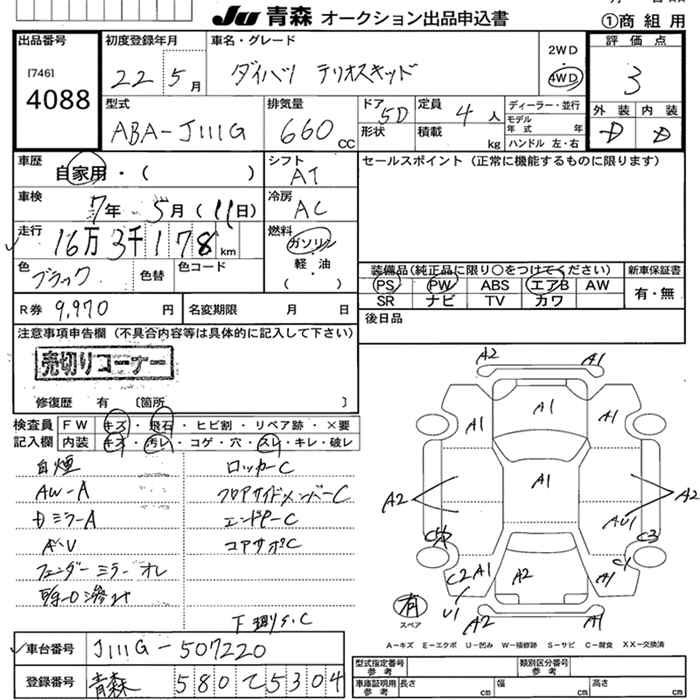 JU 青森 オークション出品申込書
①商組用
出品番号
[746]
4088
初度登録年月
22 5月
車名・グレード
ダイハツ テリオスキッド
2WD
4WD
評価点
3
外装 内装
D D
型式
ABA-J111G
排気量
660 CC
ドア 5D
形状
定員 4人
積載 kg
ディーラー・並行
モデル年式 年
ハンドル 左・右
車歴
自家用・( )
シフト
AT
セールスポイント(正常に機能するものに限ります)
車検
7年 5月(11日)
冷房
AC
走行
16万3千178km
燃料
ガソリン
軽・油
( )
色
ブラック
色替
色コード
装備品(純正品に限り○をつけてください)
新車保証書
PS PW ABS エアB AW
SR ナビ TV カワ
有・無
R券 9,970円
名変期限 月 日
後日品
注意事項申告欄(不具合内容等は具体的に記入して下さい)
売切りコーナー
修復歴 有 〔箇所 〕
検査員記入欄
FW キズ・飛石・ヒビ割・リペア跡・×要
内装 キズ・汚レ・コゲ・穴・スレ・キレ・破レ
ロッカーC
AW-A
フロアサイドメンバーC
Dミラー A
エンドP-C
コアサポC
フェンダーミラーオレ
下廻りS.C
A2 A1
A1 A1 A1
A1
A2 A2
AU1
C3
C2 A1 A2 A1 C1
U1 A2 A1
有
スペア
A-キズ E-エクボ U-凹み W-補修跡 S-サビ C-腐食 XX-交換済
車台番号
J111G-507220
登録番号
青森 580 て 5304
型式指定番号 参考
類別区分番号 参考
車庫証明用 参考
長さ cm 幅 cm 高さ cm